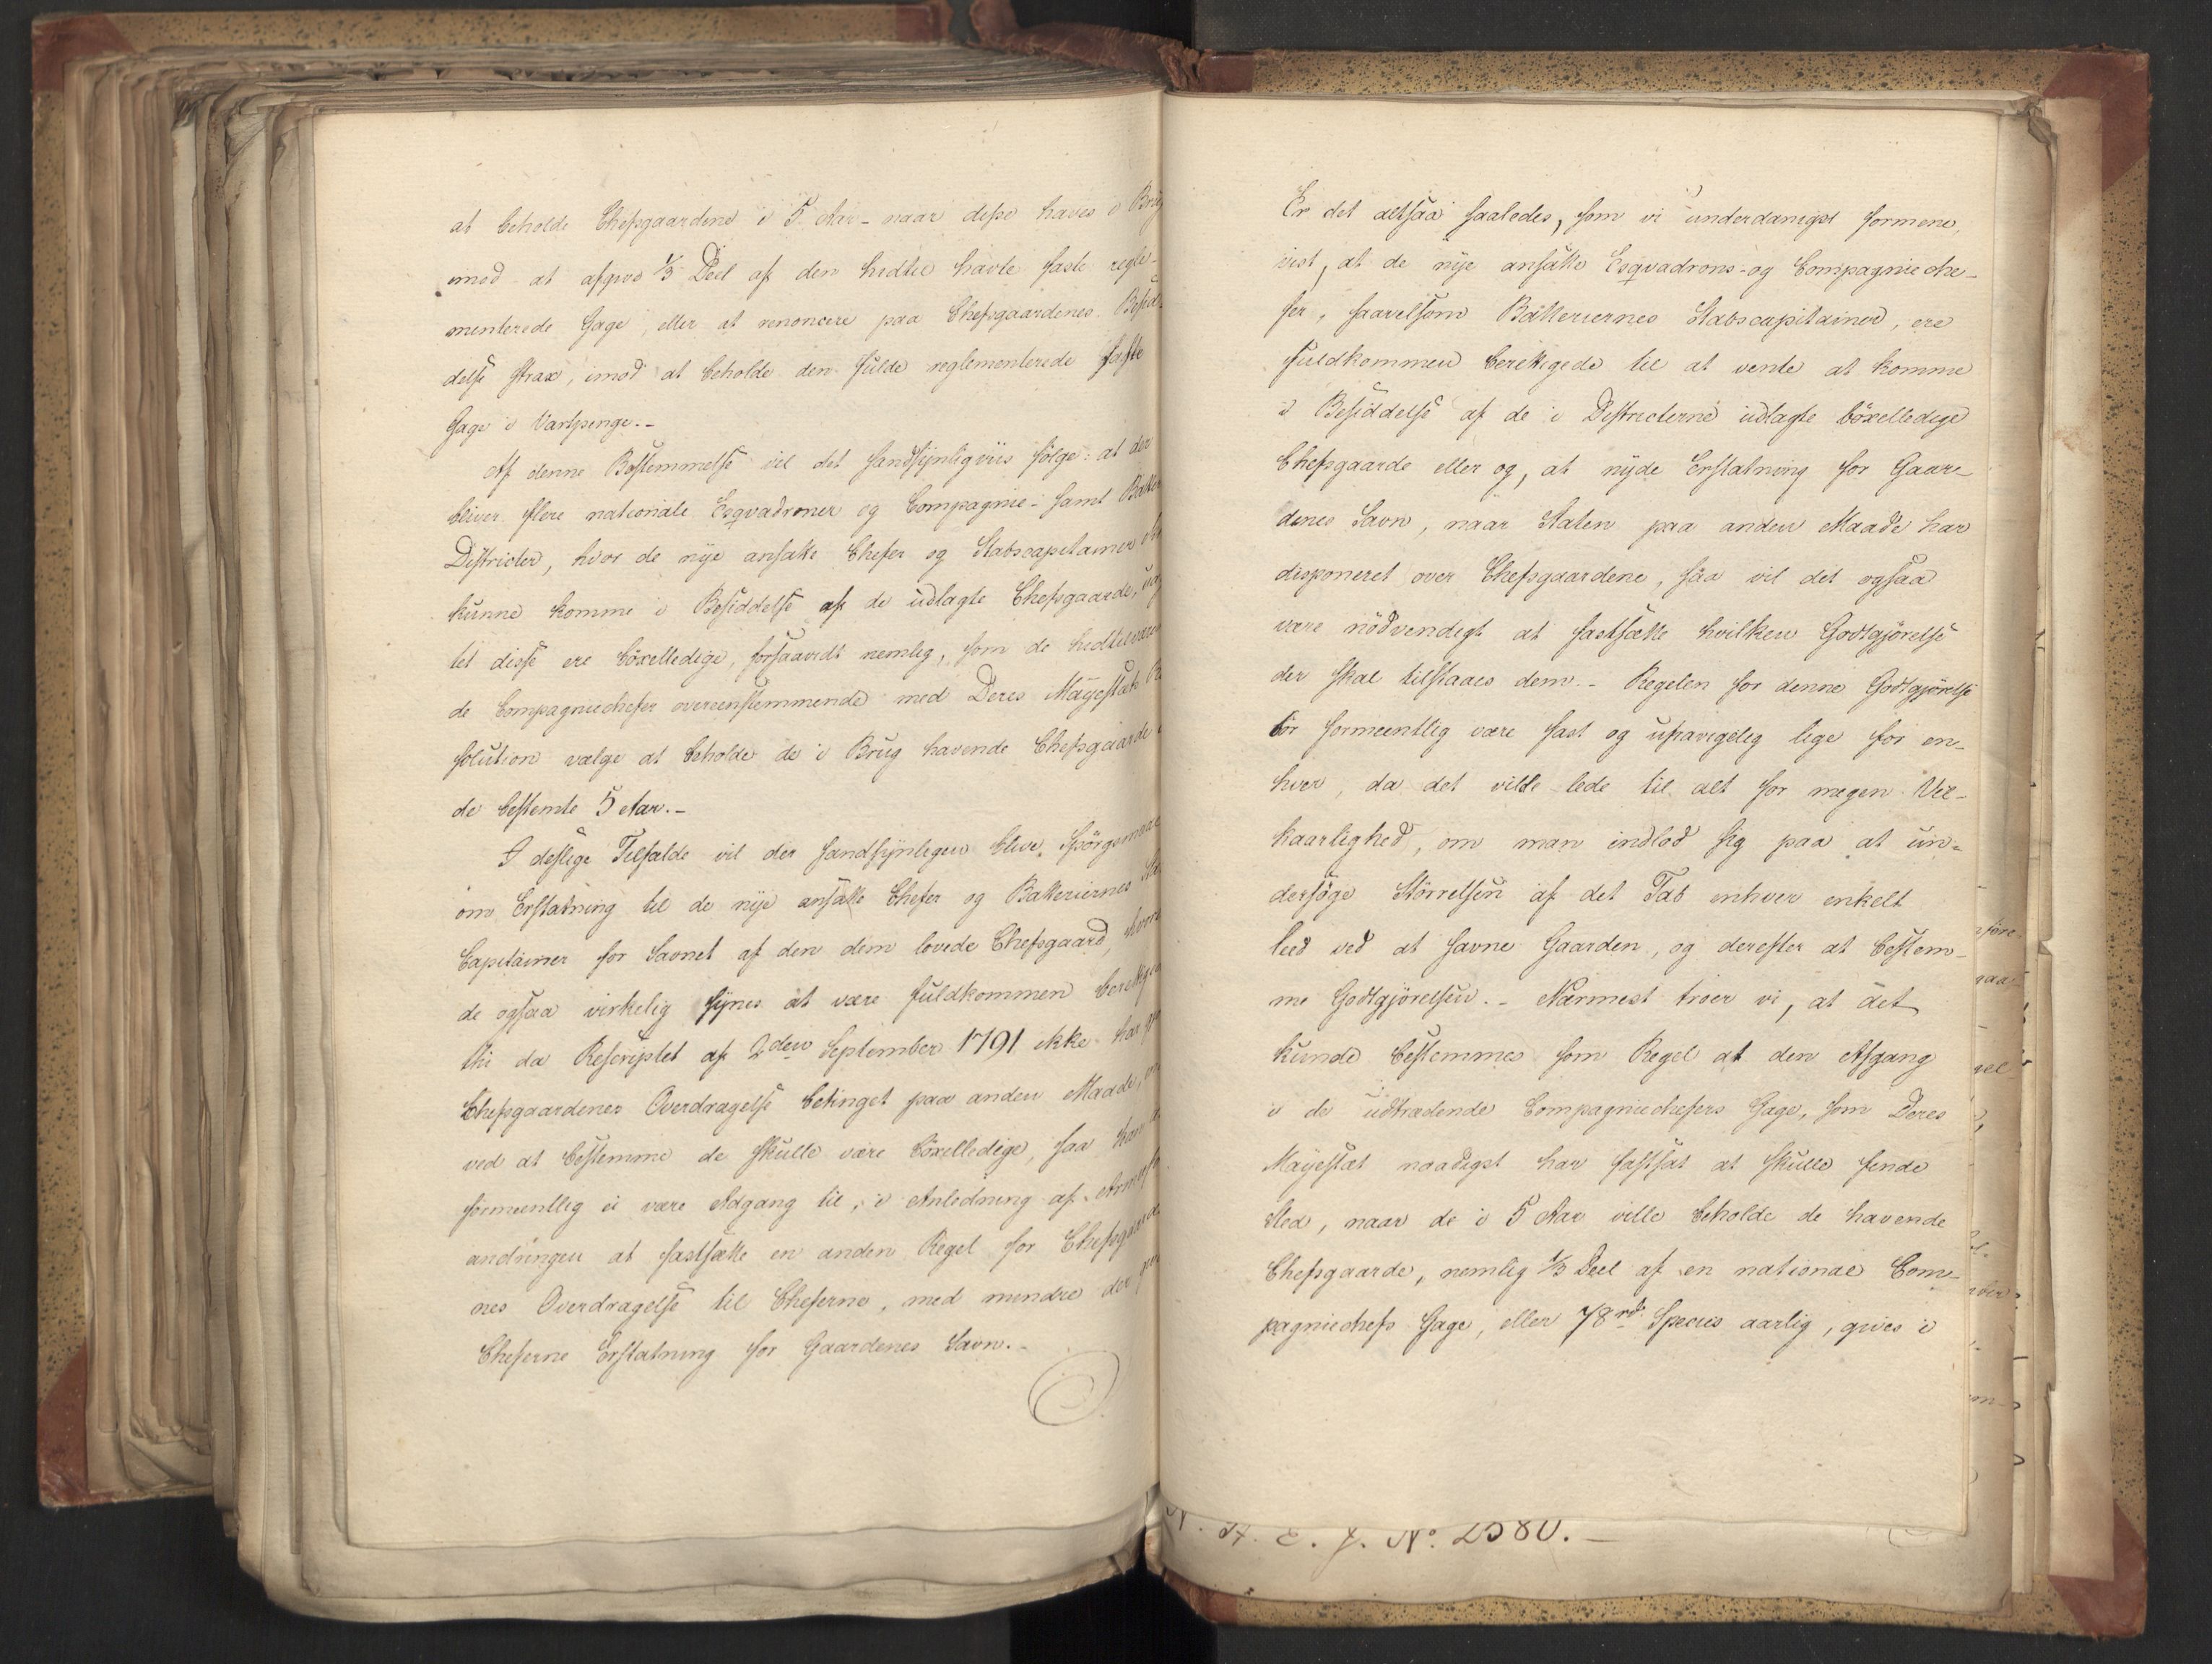 at beholde Chefsgaardene i 5 Aar - naar disse haves i Brug
imod at afgive 1/3 Deel af den hidtil havte faste regle-
menterede Gage, eller at renoncere paa Chefsgaardenes Besid-
delse strax, imod at beholde den fulde reglementerede faste
Gage i Vartpenge.-
Af denne Bestemmelse vil det sandsynligviis følge: at der
bliver flere nationale Esqvadroner og Compagnie- samt
Districter, hvor de nye ansatte Chefer og Stabscapitainer
kunne komme i Besiddelse af de udlagte Chefsgaarde,
tet disse ere böxelledige, forsaavidt nemlig, som de hidtilværen
de Compagniechefer overeenstemmende med Deres Mayestæts Re
solution vælge at beholde de i Brug havende Chefsgaarde
de bestemte 5 Aar.-
I deslige Tilfælde vil der sandsynligen blive Spörgsmaal
om Erstatning til de nye ansatte Chefer og Batteriernes
Capitainer for Savnet af den dem lovede Chefsgaard,
de ogsaa virkelig synes at være fuldkommen
thi da Rescriptet af 2den September 1791 ikke har
Chefsgaardenes Overdragelse betinget paa anden Maade,
ved at bestemme de skulle være böxelledige, saa
formeentlig ei være Adgang til, i Anledning af
andringen at fastsætte en anden Regel for Chefsgaarde
nes Overdragelse til Cheferne, med mindre der
Cheferne Erstatning for Gaardenes Savn.-
Er det altsaa saaledes, som vi underdanigst formene,
vist, at de nye ansatte Esqvadrons- og Compagnieche-
fer, saavelsom Batteriernes Stabscapitainer, ere
fuldkommen berettigede til at vente at komme
i Besiddelse af de i Districterne udlagte böxelledige
Chefsgaarde eller og, at nyde Erstatning for Gaar-
denes Savn, naar Staten paa anden Maade har
disponeret over Chefsgaardene, saa vil det ogsaa
være nödvendigt at fastsætte hvilken Godtgjörelse
der skal tilstaaes dem.- Regelen for denne Godtgjörelse
bör formeentlig være fast og ufravigelig lige for en-
hver, da det vilde lede til alt for megen Vil-
kaarlighed, om man indlod sig paa at un-
dersöge Störrelsen af det Tab enhver enkelt
leed ved at savne Gaarden, og derefter at bestem-
me Godtgjörelsen.- Nærmest troer vi, at det
kunde bestemmes som Regel at den Afgang
i de udtrædende Compagniechefers Gage, som Deres
Mayestæt naadigst har fastsat at skulle finde
Sted, naar de i 5 Aar ville beholde de havende
Chefsgaarde, nemlig 1/3 Deel af en national Com-
pagniechefs Gage, eller 78 rd. Species aarlig, gives i
No. 2580.-